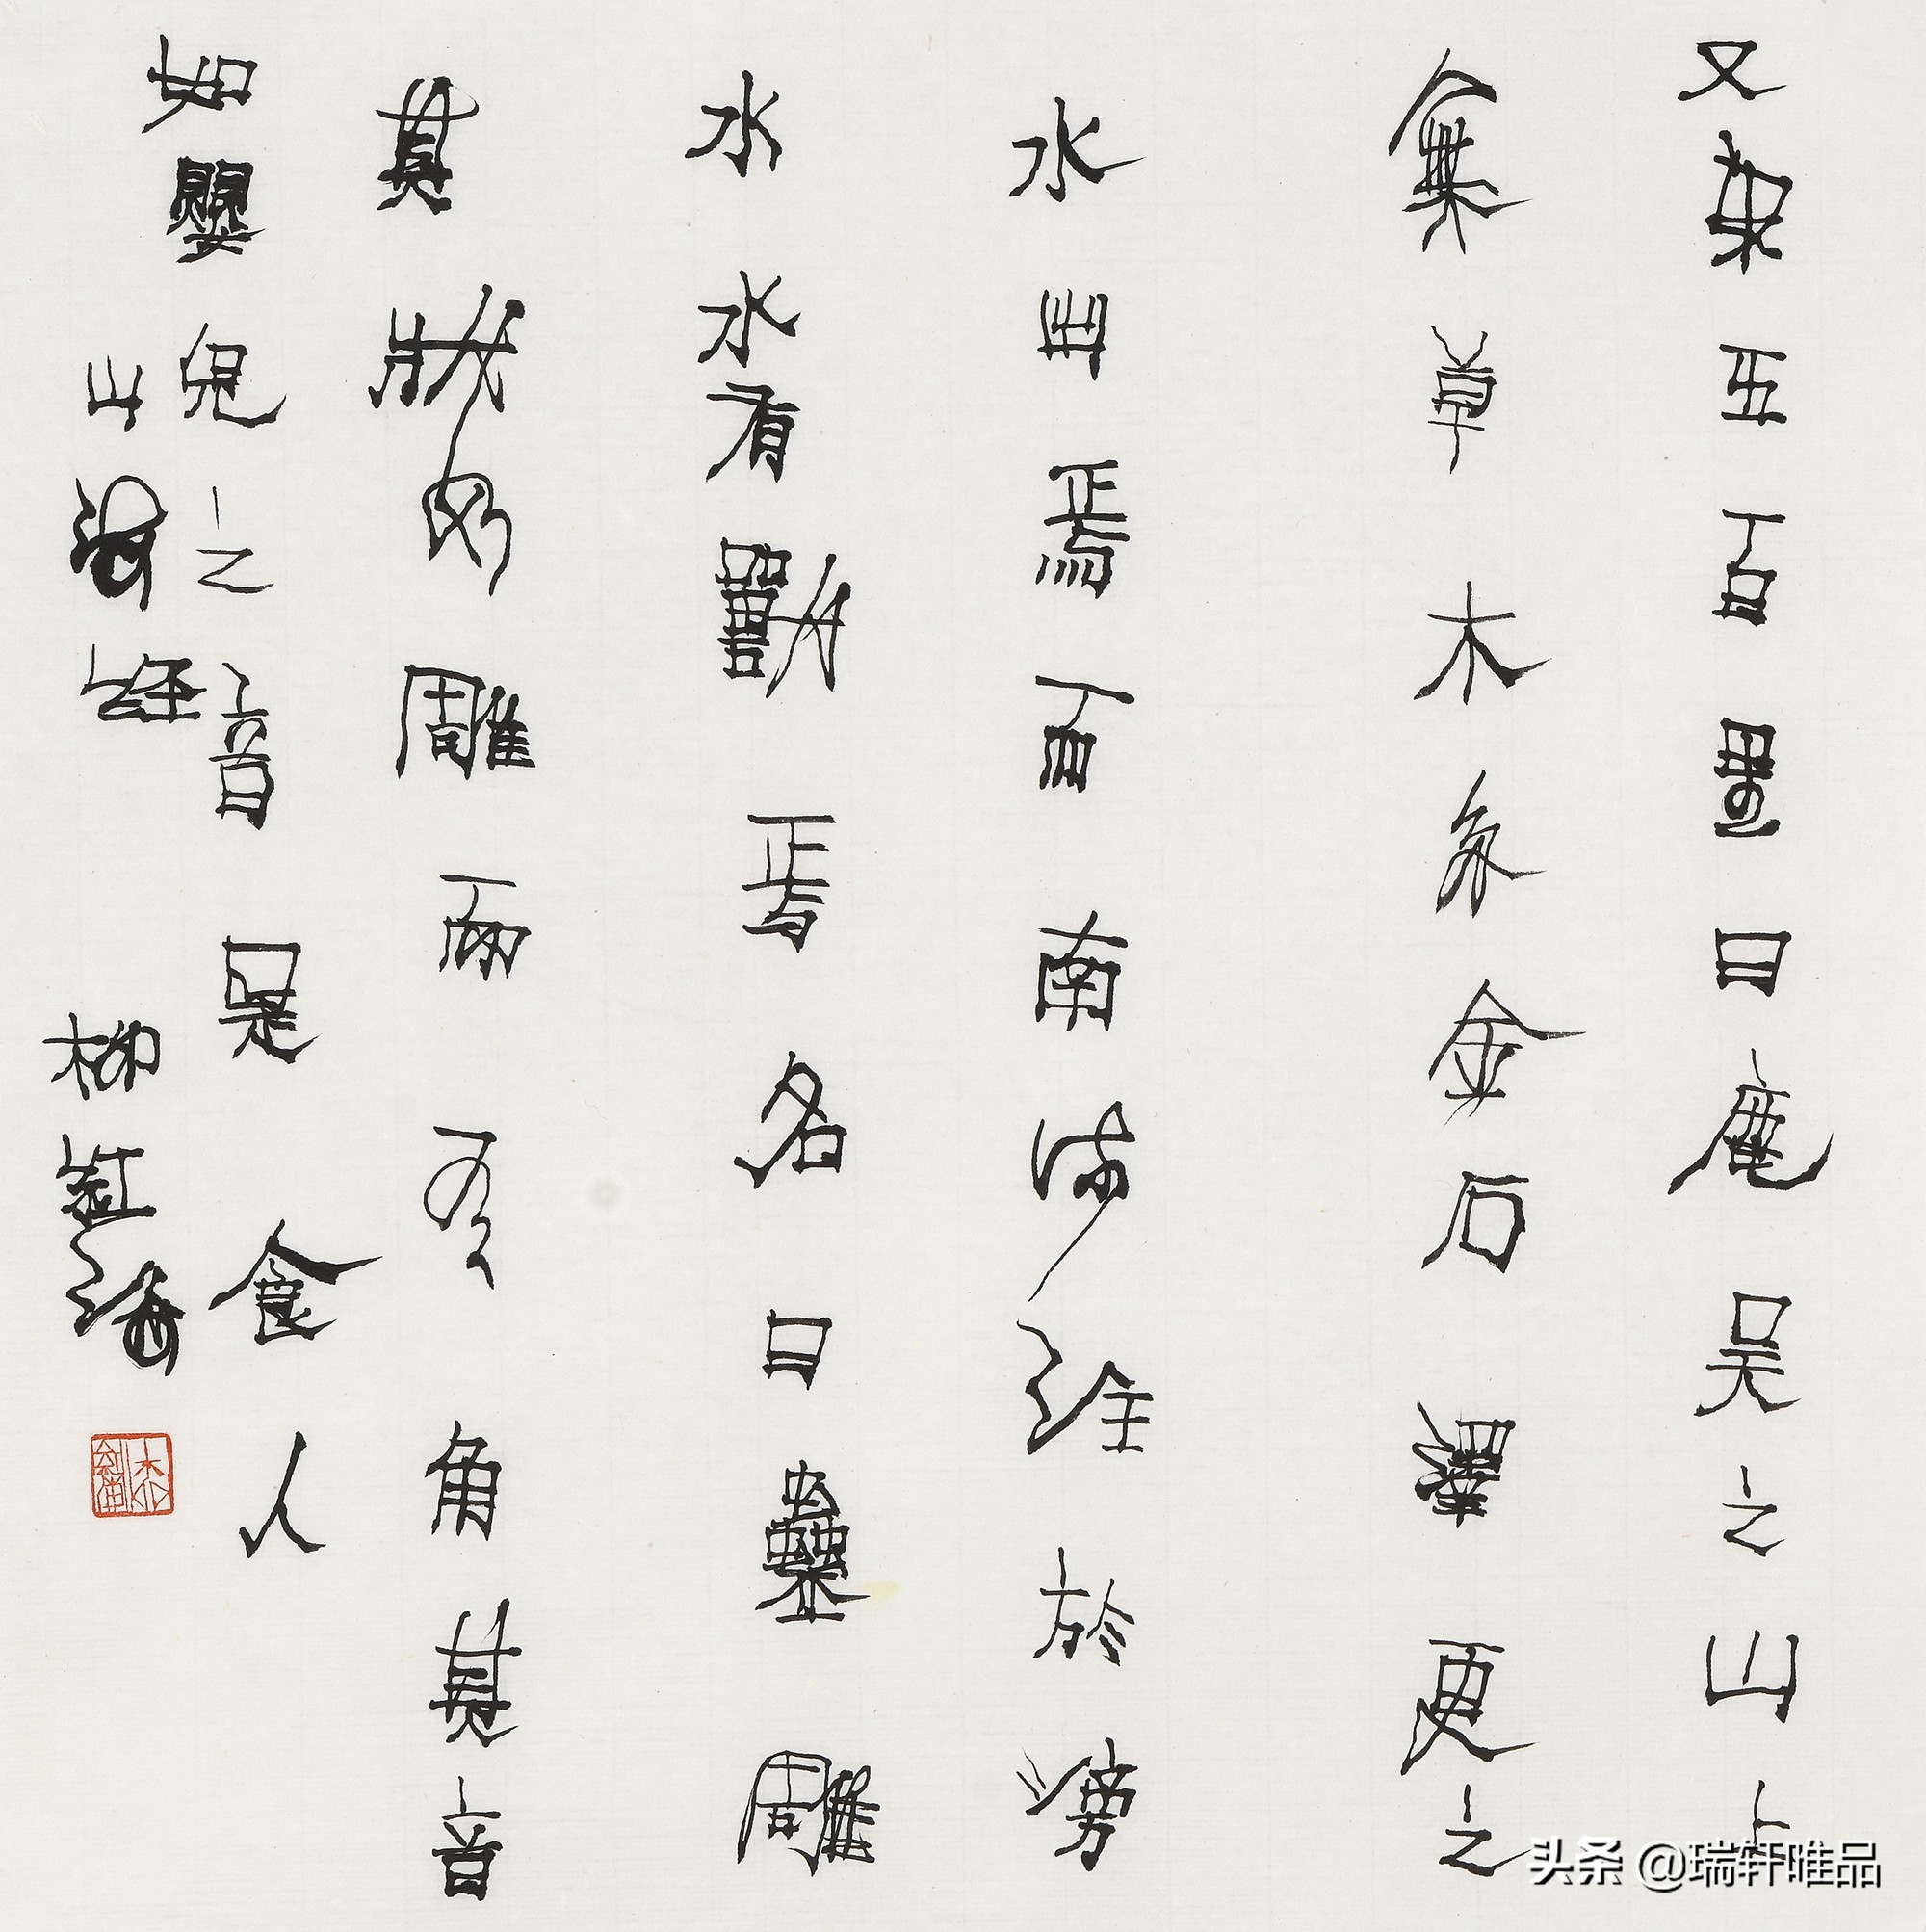 又東五百里曰鹿吴之山上
無草木多金石澤更之
水出焉而南流注於滂
水水有獸焉名曰蠱雕
其狀如雕而有角其音
如嬰兒之音是食人
山海經
柳红海
头条 @瑞轩唯品